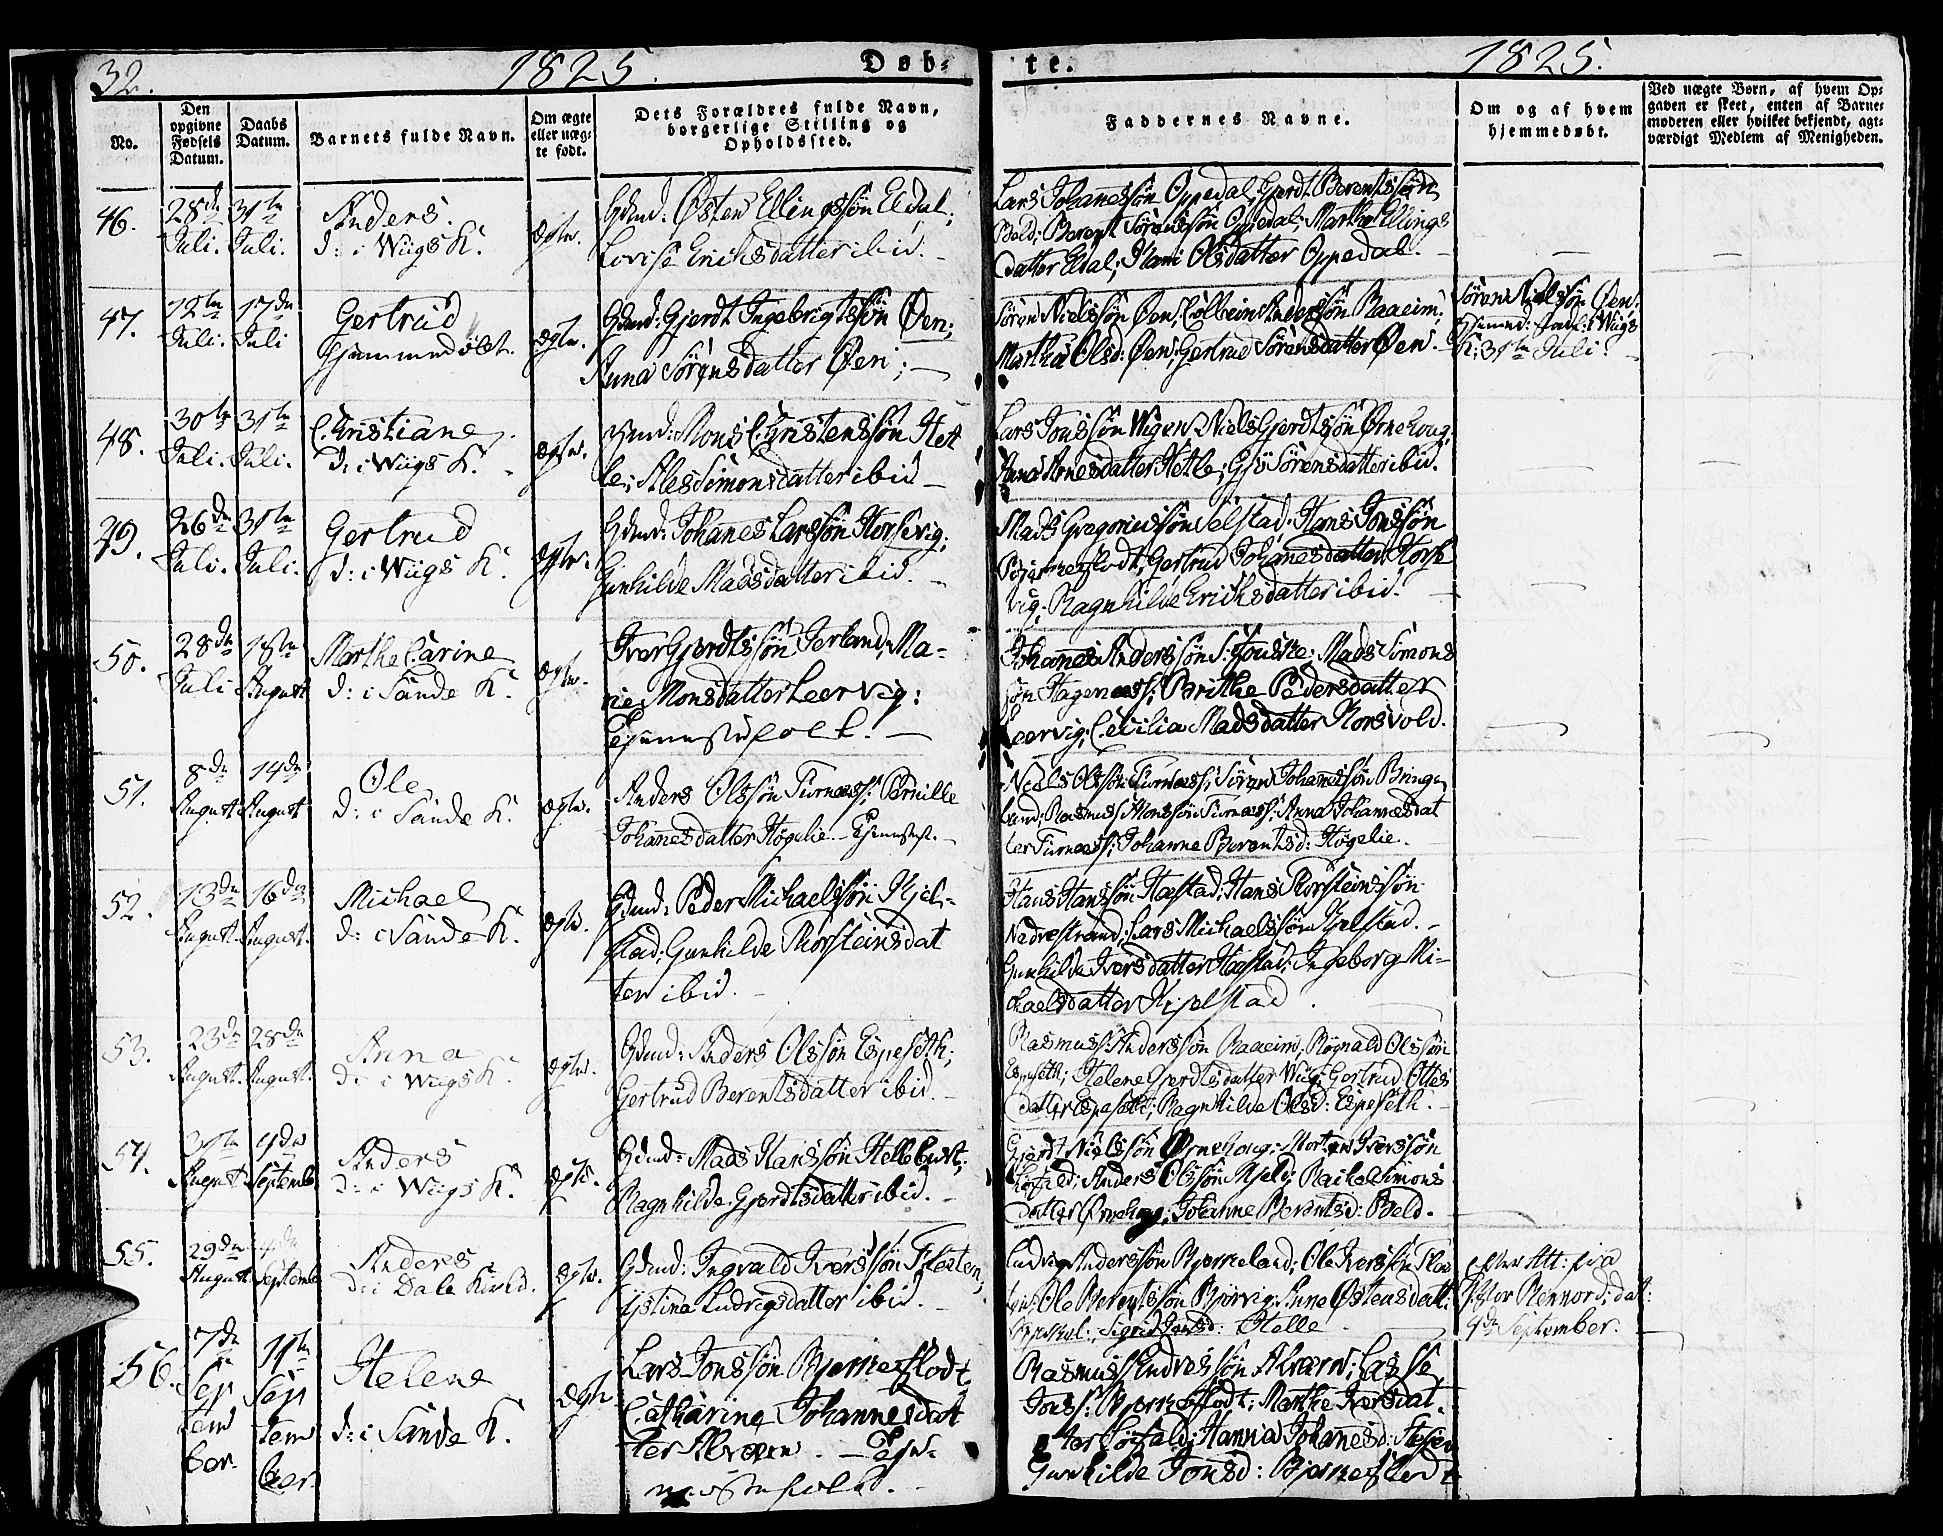 32. 1825. Døb- te. 1825.
No.
Den opgivne Fødsels Datum.
Daabs Datum.
Barnets fulde Navn.
Om ægte eller uægte født.
Dets Forældres fulde Navn, borgerlige Stilling og Opholdssted.
Faddernes Navne.
Om og af hvem hjemmedøbt.
Ved uægte Børn, af hvem Opgaven er skeet, enten af Barnemoderen eller hvilket bekjendt, agtværdigt Medlem af Menigheden.
46. 28de Juli. 31te Juli. Anders. d: i Wiigs K. ægte.
Gdmd: Østen Ellingssøn Eldal;
Lovise Erichsdatter ibid. –
Lars Johanessøn Oppedal, Gjerdt Berentssøn
Beld; Berent Sørenssøn Oppedal; Marthe Ellings
datter Eldal; Olsdatter Oppedal. –
47. 12te Juli. 17de Juli Gertrud hjemmedøbt. ægte.
Gdmd: Gjerdt Ingebrigtssøn Øen;
Anna Sørensdatter Øen; –
Søren Nielssøn Øen; Colbein Anderssøn Raaeim;
Martha Olsd: Øen; Gertrud Sørensdatter Øen. –
Søren Nielssøn Øen;
i Wiigs
K: 31te Juli.
48. 30te Juli. 31te Juli. Christiane d: i Wiigs K. ægte.
Mons Christenssøn Het
le; Ales Simonsdatter ibid –
Lars Jonssøn Wigen Niels Gjerdtssøn Ørnehoug;
Anna Monsdatter Hetle; Sørensdatter ibid.
49. 26de Juli. 31te Juli. Gertrud d: i Wiigs K. ægte.
Gdmd: Johanes Larssøn Horsevig;
Gunhilde Madsdatter ibid. –
Mads Gregoriussøn Selstad; Hans Jonssøn
Bjerneflodt, Gertrud Johanesdatter Horse
vig; Ragnhilde Erichsdatter ibid. –
50. 28de Juli August Marthe Carine d: i Sande K. ægte.
Iver Gjerdtssøn Ma-
rie Monsdatter Leervig:
Johanes Anderssøn Mads Simons
søn Hagenæss; Brithe Pedersdatter
Leervig; Cecilia Madsdatter Korsvold.
51. 8de August 14de August Ole d: i Sande K. ægte.
Anders Olssøn Furnæss; Pernille
Johanesdatter Høgelie –
Niels Olssøn Furnæss; Søren Johanessøn Bringe
land; Rasmus Monssøn Furnæss; Anna Johannesdat
ter Furnæss; Johanne Berentsd: Høgelie.
52. 13de August. 16de August. Michael d: i Sande K. ægte.
Gdmd: Peder Michaelssøn Kjel-
stad; Gunhilde Thorsteinsdat
ter ibid. –
Hans Hanssøn Hæstad; Hans Thorsteinssøn
Nedrestrand; Lars Michaelssøn Kjelstad. –
Gunhilde Iversdatter Hæstad; Ingeborg Mi-
chaelsdatter Kjelstad.
53. 23de August. 28de August. Anna d: i Wiigs K. ægte.
Gdmd: Anders Olssøn Espeseth;
Gertrud Berentsdatter ibid. –
Rasmus Anderssøn Raaeim; Røgnald Olssøn
Espeseth; Helene Gjerdtsdatter Wiig; Gertrud Ottes
datter Espeseth; Ragnhilde Olsd: Espeseth. –
54. 31te August. 4de Septembe Anders d: i Wiigs K. ægte.
Gdmd: Mads Hanssøn Hellebust;
Ragnhilde Gjerdtsdatter ibid. –
Gjerdt Nielssøn Ørnehoug; Morten Iverssøn
Anders Olssøn Simons
datter Ørnehoug; Johanne Berentsd: Beld.
55. 29de August 4de Septembe Anders d: i Dale Kirkd. ægte.
Gdmd: Ingvald Iverssøn Fleten;
Ludvigsdatter ibid. –
Ludvig Anderssøn Bjerneland; Ole Iverssøn Fle
ten; Ole Berentssøn Bjørvig; Anne Østensdatt:
Sigrid Helle –
efter Att: fra
Pastor Rennord; dat:
4de September.
56. 7de Sep tem ber. 11te Sep tem ber. Helene d: i Sande K. ægte
Lars Jonssøn Bjerneflodt
Catharine Johannesdat
ter Alværn. –
Rasmus Endressøn Alværn; Lasse
Jonss: Bjerneflodt; Marthe Iversdat
ter Hanna Johanesd:
Gunhilde Jonsd: Bjerneflodt